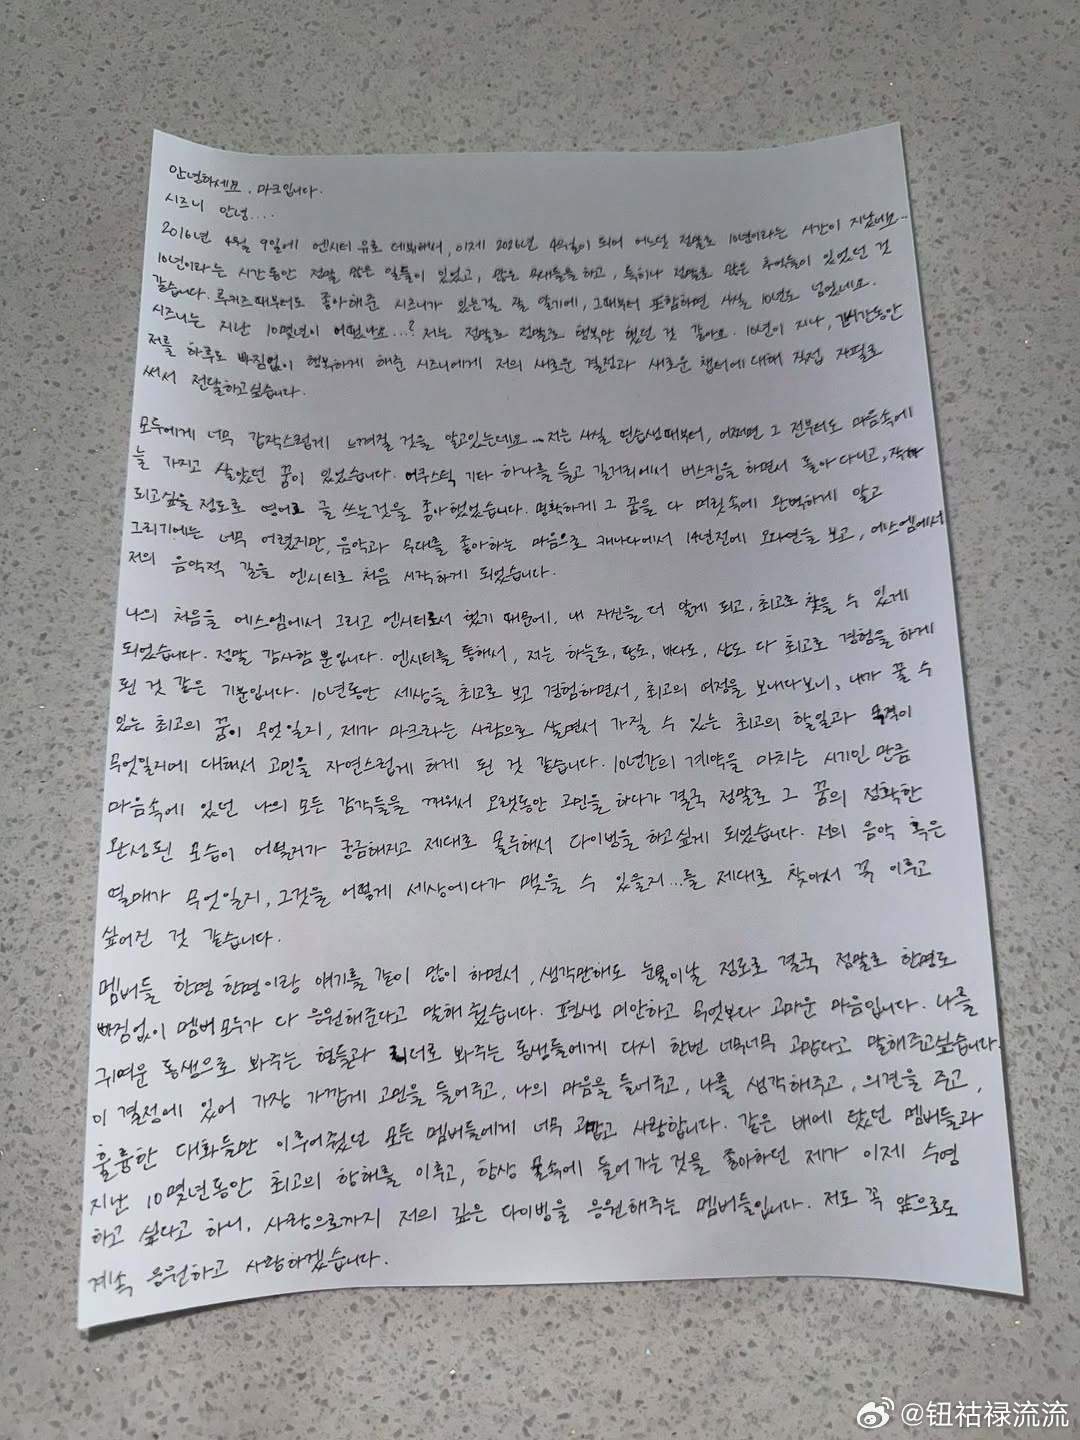 안녕하세요. 마크입니다.
시즈니 안녕....
2016년 4월 9일에 엔시티 유로 데뷔해서, 이제 2026년 4월이 되어 어느새 정말로 10년이라는 시간이 지났네요..
10년이라는 시간동안 정말 많은 일들이 있었고, 많은 무대들을 하고, 특히나 정말로 많은 추억들이 있었던 것
같습니다. 루키즈때부터도 좋아해준 시즈니가 있는걸 잘 알기에, 그때부터 포함하면 사실 10년도 넘었네요.
시즈니는 지난 10몇년이 어땠나요...? 저는 정말로 정말로 행복만 했던 것 같아요. 10년이 지나, 긴시간동안
저를 하루도 빠짐없이 행복하게 해준 시즈니에게 저의 새로운 결정과 새로운 챕터에 대해 직접 자필로
써서 전달하고싶습니다.
모두에게 너무 갑작스럽게 느껴질 것을 알고있는데요... 저는 사실 연습생때부터, 어쩌면 그 전부터도 마음속에
늘 가지고 살았던 꿈이 있었습니다. 어쿠스틱 기타 하나를 들고 길거리에서 버스킹을 하면서 돌아다니고, 작가
되고싶을 정도로 영어로 글 쓰는것을 좋아했었습니다. 명확하게 그 꿈을 다 머릿속에 완벽하게 알고
그리기에는 너무 어렸지만, 음악과 무대를 좋아하는 마음으로 캐나다에서 14년전에 오디션을 보고, 에스엠에서
저의 음악적 길을 엔시티로 처음 시작하게 되었습니다.
나의 처음을 에스엠에서 그리고 엔시티로서 했기 때문에, 내 자신을 더 알게 되고, 최고로 찾을 수 있게
되었습니다. 정말 감사함 뿐입니다. 엔시티를 통해서, 저는 하늘도, 땅도, 바다도, 산도 다 최고로 경험을 하게
된 것 같은 기분입니다. 10년동안 세상을 최고로 보고 경험하면서, 최고의 여정을 보내다보니, 내가 꿀 수
있는 최고의 꿈이 무엇일지, 제가 마크라는 사람으로 살면서 가질 수 있는 최고의 할일과 목적이
무엇일지에 대해서 고민을 자연스럽게 하게 된 것 같습니다. 10년간의 계약을 마치는 시기인 만큼
마음속에 있던 나의 모든 감각들을 깨워서 오랫동안 고민을 하다가 결국 정말로 그 꿈의 정확한
완성된 모습이 어떨지가 궁금해지고 제대로 몰두해서 다이빙을 하고싶게 되었습니다. 저의 음악 혹은
열매가 무엇일지, 그것을 어떻게 세상에다가 맺을 수 있을지...를 제대로 찾아서 꼭 이루고
싶어진 것 같습니다.
멤버들 한명 한명이랑 얘기를 같이 많이 하면서, 생각만해도 눈물이날 정도로 결국 정말로 한명도
빠짐없이 멤버 모두가 다 응원해준다고 말해 줬습니다. 평생 미안하고 무엇보다 고마운 마음입니다. 나를
귀여운 동생으로 봐주는 형들과 리더로 봐주는 동생들에게 다시 한번 너무너무 고맙다고 말해주고싶습니다.
이 결정에 있어 가장 가깝게 고민을 들어주고, 나의 마음을 들어주고, 나를 생각해주고, 의견을 주고,
훌륭한 대화들만 이루어줬던 모든 멤버들에게 너무 고맙고 사랑합니다. 같은 배에 탔던 멤버들과
지난 10몇년동안 최고의 항해를 이루고, 항상 물속에 들어가는것을 좋아하던 제가 이제 수영
하고 싶다고 하니, 사랑으로까지 저의 깊은 다이빙을 응원해주는 멤버들입니다. 저도 꼭 앞으로도
계속 응원하고 사랑하겠습니다.
@钮祜禄流流